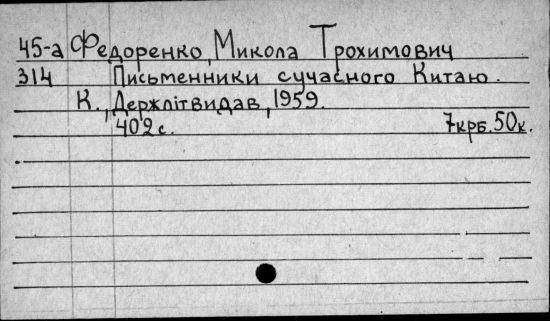 45-а Федоренко, Микола Трохимович
314 Письменники сучасного Китаю.
К., Держлітвидав, 1959.
402 с. 7крб. 50к.